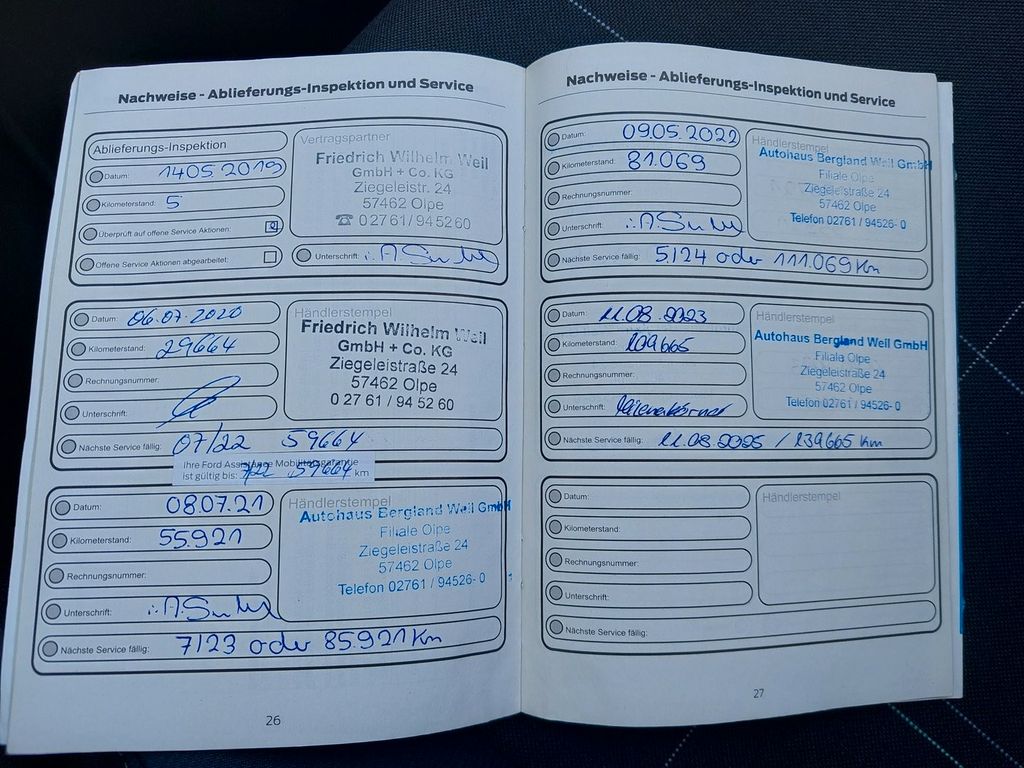 Nachweise - Ablieferungs-Inspektion und Service
Ablieferungs-Inspektion
Datum: 14 05 2019
Kilometerstand: 5
Überprüft auf offene Service Aktionen:
Offene Service Aktionen abgearbeitet:
Vertragspartner
Friedrich Wilhelm Weil
GmbH + Co. KG
Ziegeleistr. 24
57462 Olpe
☎ 0 27 61 / 94 52 60
Unterschrift:
Datum: 06.07.2020
Kilometerstand: 29664
Rechnungsnummer:
Unterschrift:
Händlerstempel
Friedrich Wilhelm Weil
GmbH + Co. KG
Ziegeleistraße 24
57462 Olpe
0 27 61 / 94 52 60
Nächste Service fällig: 07/22 59664
Ihre Ford Assistance Mobilitätsgarantie
ist gültig bis: 7/22 59664 km
Datum: 08.07.21
Kilometerstand: 55.921
Rechnungsnummer:
Unterschrift:
Händlerstempel
Autohaus Bergland Weil GmbH
Filiale Olpe
Ziegeleistraße 24
57462 Olpe
Telefon 02761 / 94526- 0
Nächste Service fällig: 7/23 oder 85.921 Km
26
Nachweise - Ablieferungs-Inspektion und Service
Datum: 09.05.2022
Kilometerstand: 81.069
Rechnungsnummer:
Unterschrift:
Händlerstempel
Autohaus Bergland Weil GmbH
Filiale Olpe
Ziegeleistraße 24
57462 Olpe
Telefon 02761 / 94526- 0
Nächste Service fällig: 5/24 oder 111.069 Km
Datum: 11.08.2023
Kilometerstand: 109665
Rechnungsnummer:
Unterschrift:
Händlerstempel
Autohaus Bergland Weil GmbH
Filiale Olpe
Ziegeleistraße 24
57462 Olpe
Telefon 02761 / 94526- 0
Nächste Service fällig: 11.08.2025 / 139665 Km
Datum:
Kilometerstand:
Rechnungsnummer:
Unterschrift:
Händlerstempel
Nächste Service fällig:
27